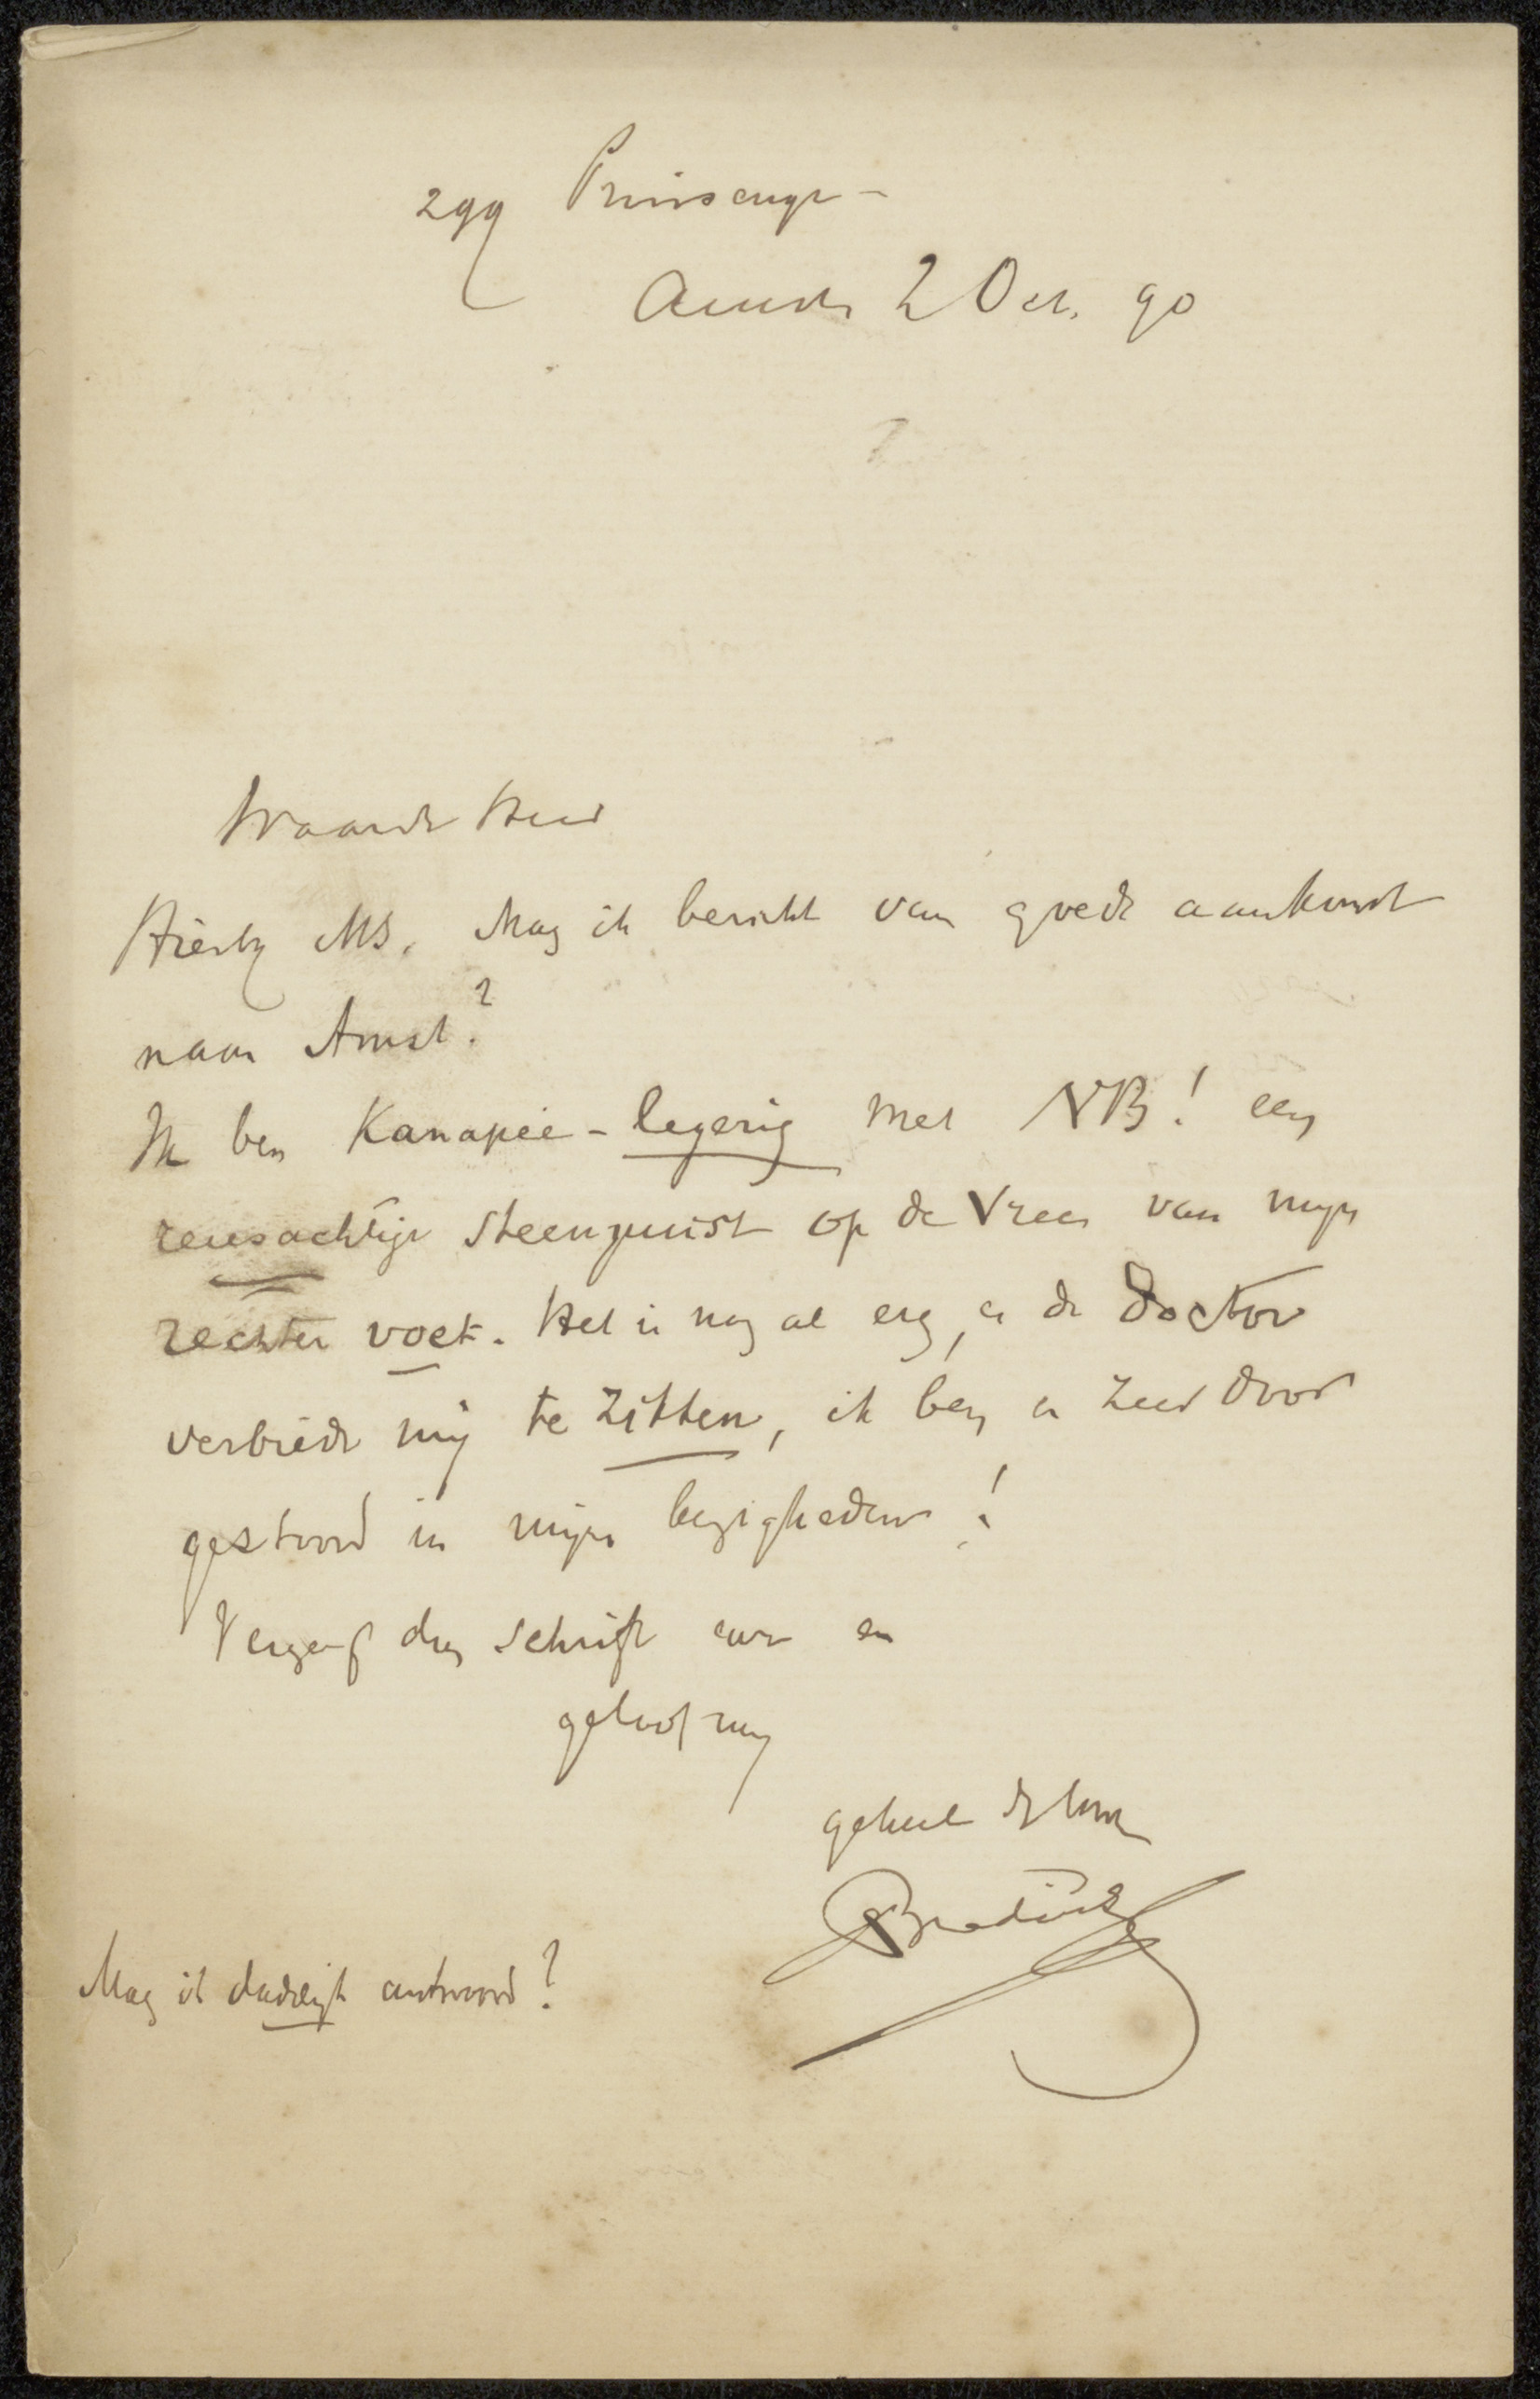 299 Prinsengr-
Amst 2 Oct. 90
Waarde Heer
Hierbij MS. Mag ik bericht van goede aankomst
naar Amst.?
Ik ben Kanapee-legerig met NB! een
reusachtige steenpuist op de Vree van mijn
rechter voet. Het is nog al erg, en de Doctor
verbiedt mij te zitten, ik ben er zeer door
gestoord in mijn bezigheden!
Vergeef dus schrift enz en
geloof mij
geheel de Uwe
Mag ik dadelijk antwoord?